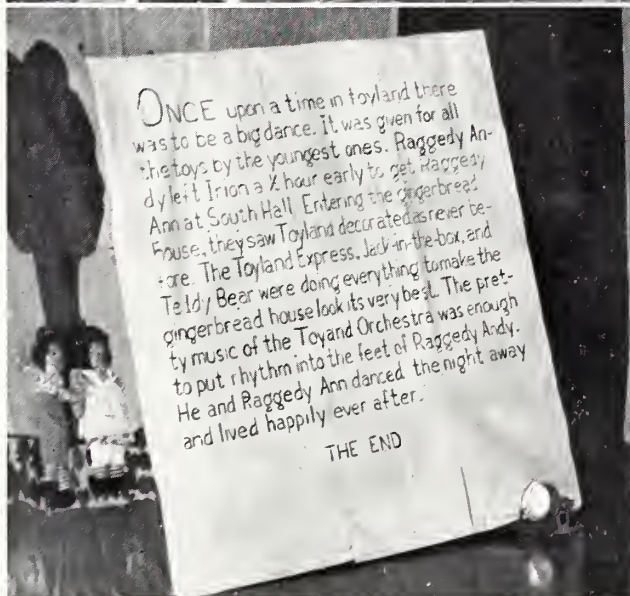 ONCE upon a time in toyland there
was to be a big dance. It was given for all
the toys by the youngest ones. Raggedy An-
dy left Irion a ½ hour early to get Raggedy
Ann at South Hall. Entering the gingerbread
house, they saw Toyland decorated as never be-
fore. The Toyland Express, Jack-in-the-box, and
Teddy Bear were doing everything to make the
gingerbread house look its very best. The pret-
ty music of the Toyand Orchestra was enough
to put rhythm into the feet of Raggedy Andy.
He and Raggedy Ann danced the night away
and lived happily ever after.
THE END